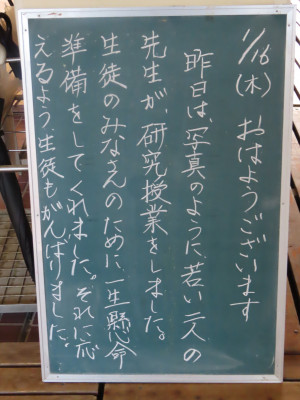 1/16(木) おはようございます
昨日は、写真のように、若い二人の
先生が、研究授業をしました。
生徒のみなさんのために、一生懸命
準備をしてくれました。それに応
えるよう、生徒もがんばりました。